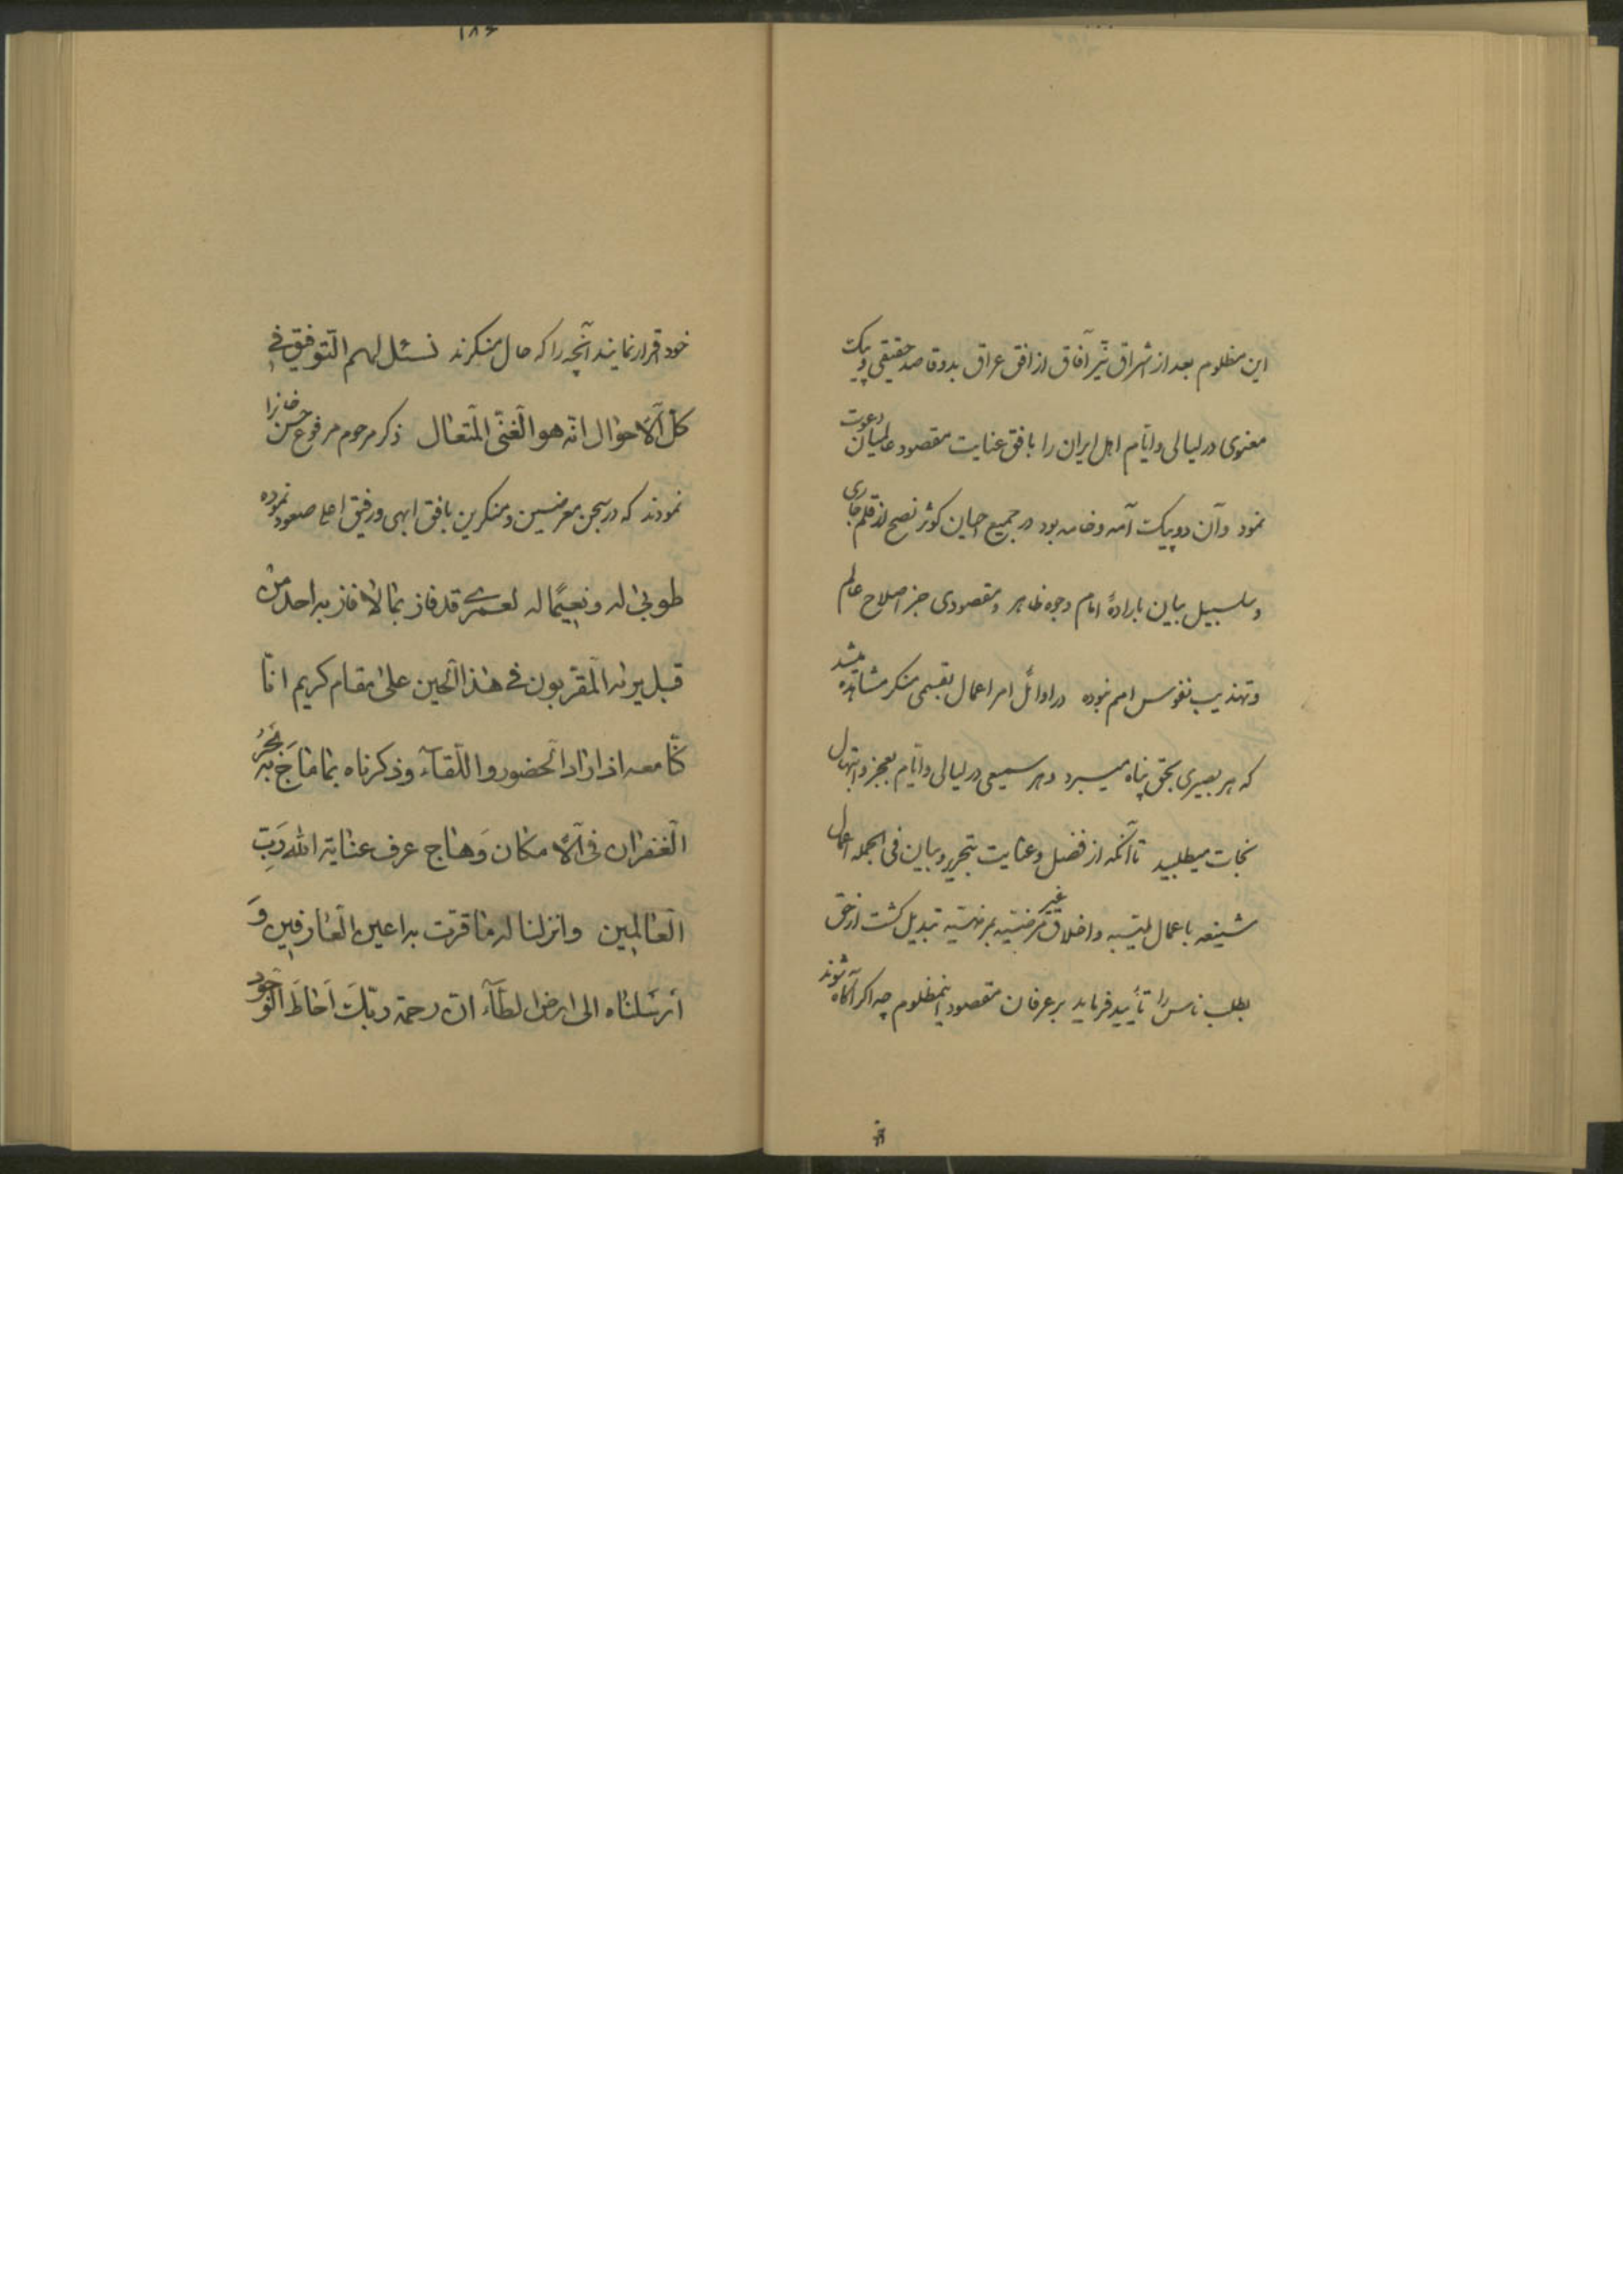 این مظلوم بعد از اشراق نیّر آفاق از افق عراق بدو قاصد حقیقی و پیک
معنوی در لیالی و ایّام اهل ایران را بافق عنایت مقصود عالمیان دعوت
نمود و آن دو پیک آمه و خامه بود در جمیع احیان کوثر نصح از قلم جاری
و سلسبیل بیان بارادهٔ امام وجوه ظاهر و مقصودی جز اصلاح عالم
و تهذیب نفوس امم نبوده در اوائل امر اعمال بقسمی منکر مشاهده میشد
که هر بصیری بحق پناه میبرد و هر سمیعی در لیالی و ایّام بعجز و ابتهال
نجات میطلبید تا آنکه از فضل و عنایت بتحریر و بیان فی الجمله اعمال
شنیعه باعمال طیّبه و اخلاق غیر مرضیّه بمرضیّه تبدیل گشت از حق
بطلب ناس را تأیید فرماید بر عرفان مقصود اینمظلوم چه اگر آگاه شوند
۱۸۶
خود اقرار نمایند آنچه را که حال منکرند نسئل لهم التّوفیق فی
کلّ الاحوال انّه هو الغنیّ المتعال ذکر مرحوم مرفوع حسن خانرا
نمودند که در سجن معرضین و منکرین بافق ابهی و رفیق اعلی صعود نموده
طوبی له و نعیمًا له لعمری قد فاز بما لا فاز به احد من
قبل یرنه المقرّبون فی هذا الحین علی مقام کریم انّا
کنّا معه اذ اراد الحضور و اللّقآء و ذکرناه بما ماج به بحر
الغفران فی الامکان و هاج عرف عنایة الله ربّ
العالمین و انزلنا له ما قرّت به اعین العارفین و
ارسلناه الی ارض الطآء انّ رحمة ربّک احاط الوجود